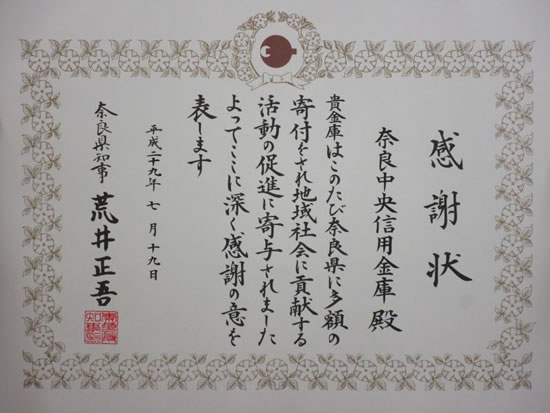 感謝状
奈良中央信用金庫 殿
貴金庫はこのたび奈良県に多額の
寄付をされ地域社会に貢献する
活動の促進に寄与されました
よってここに深く感謝の意を
表します
平成二十九年 七月 十九日
奈良県知事 荒井正吾